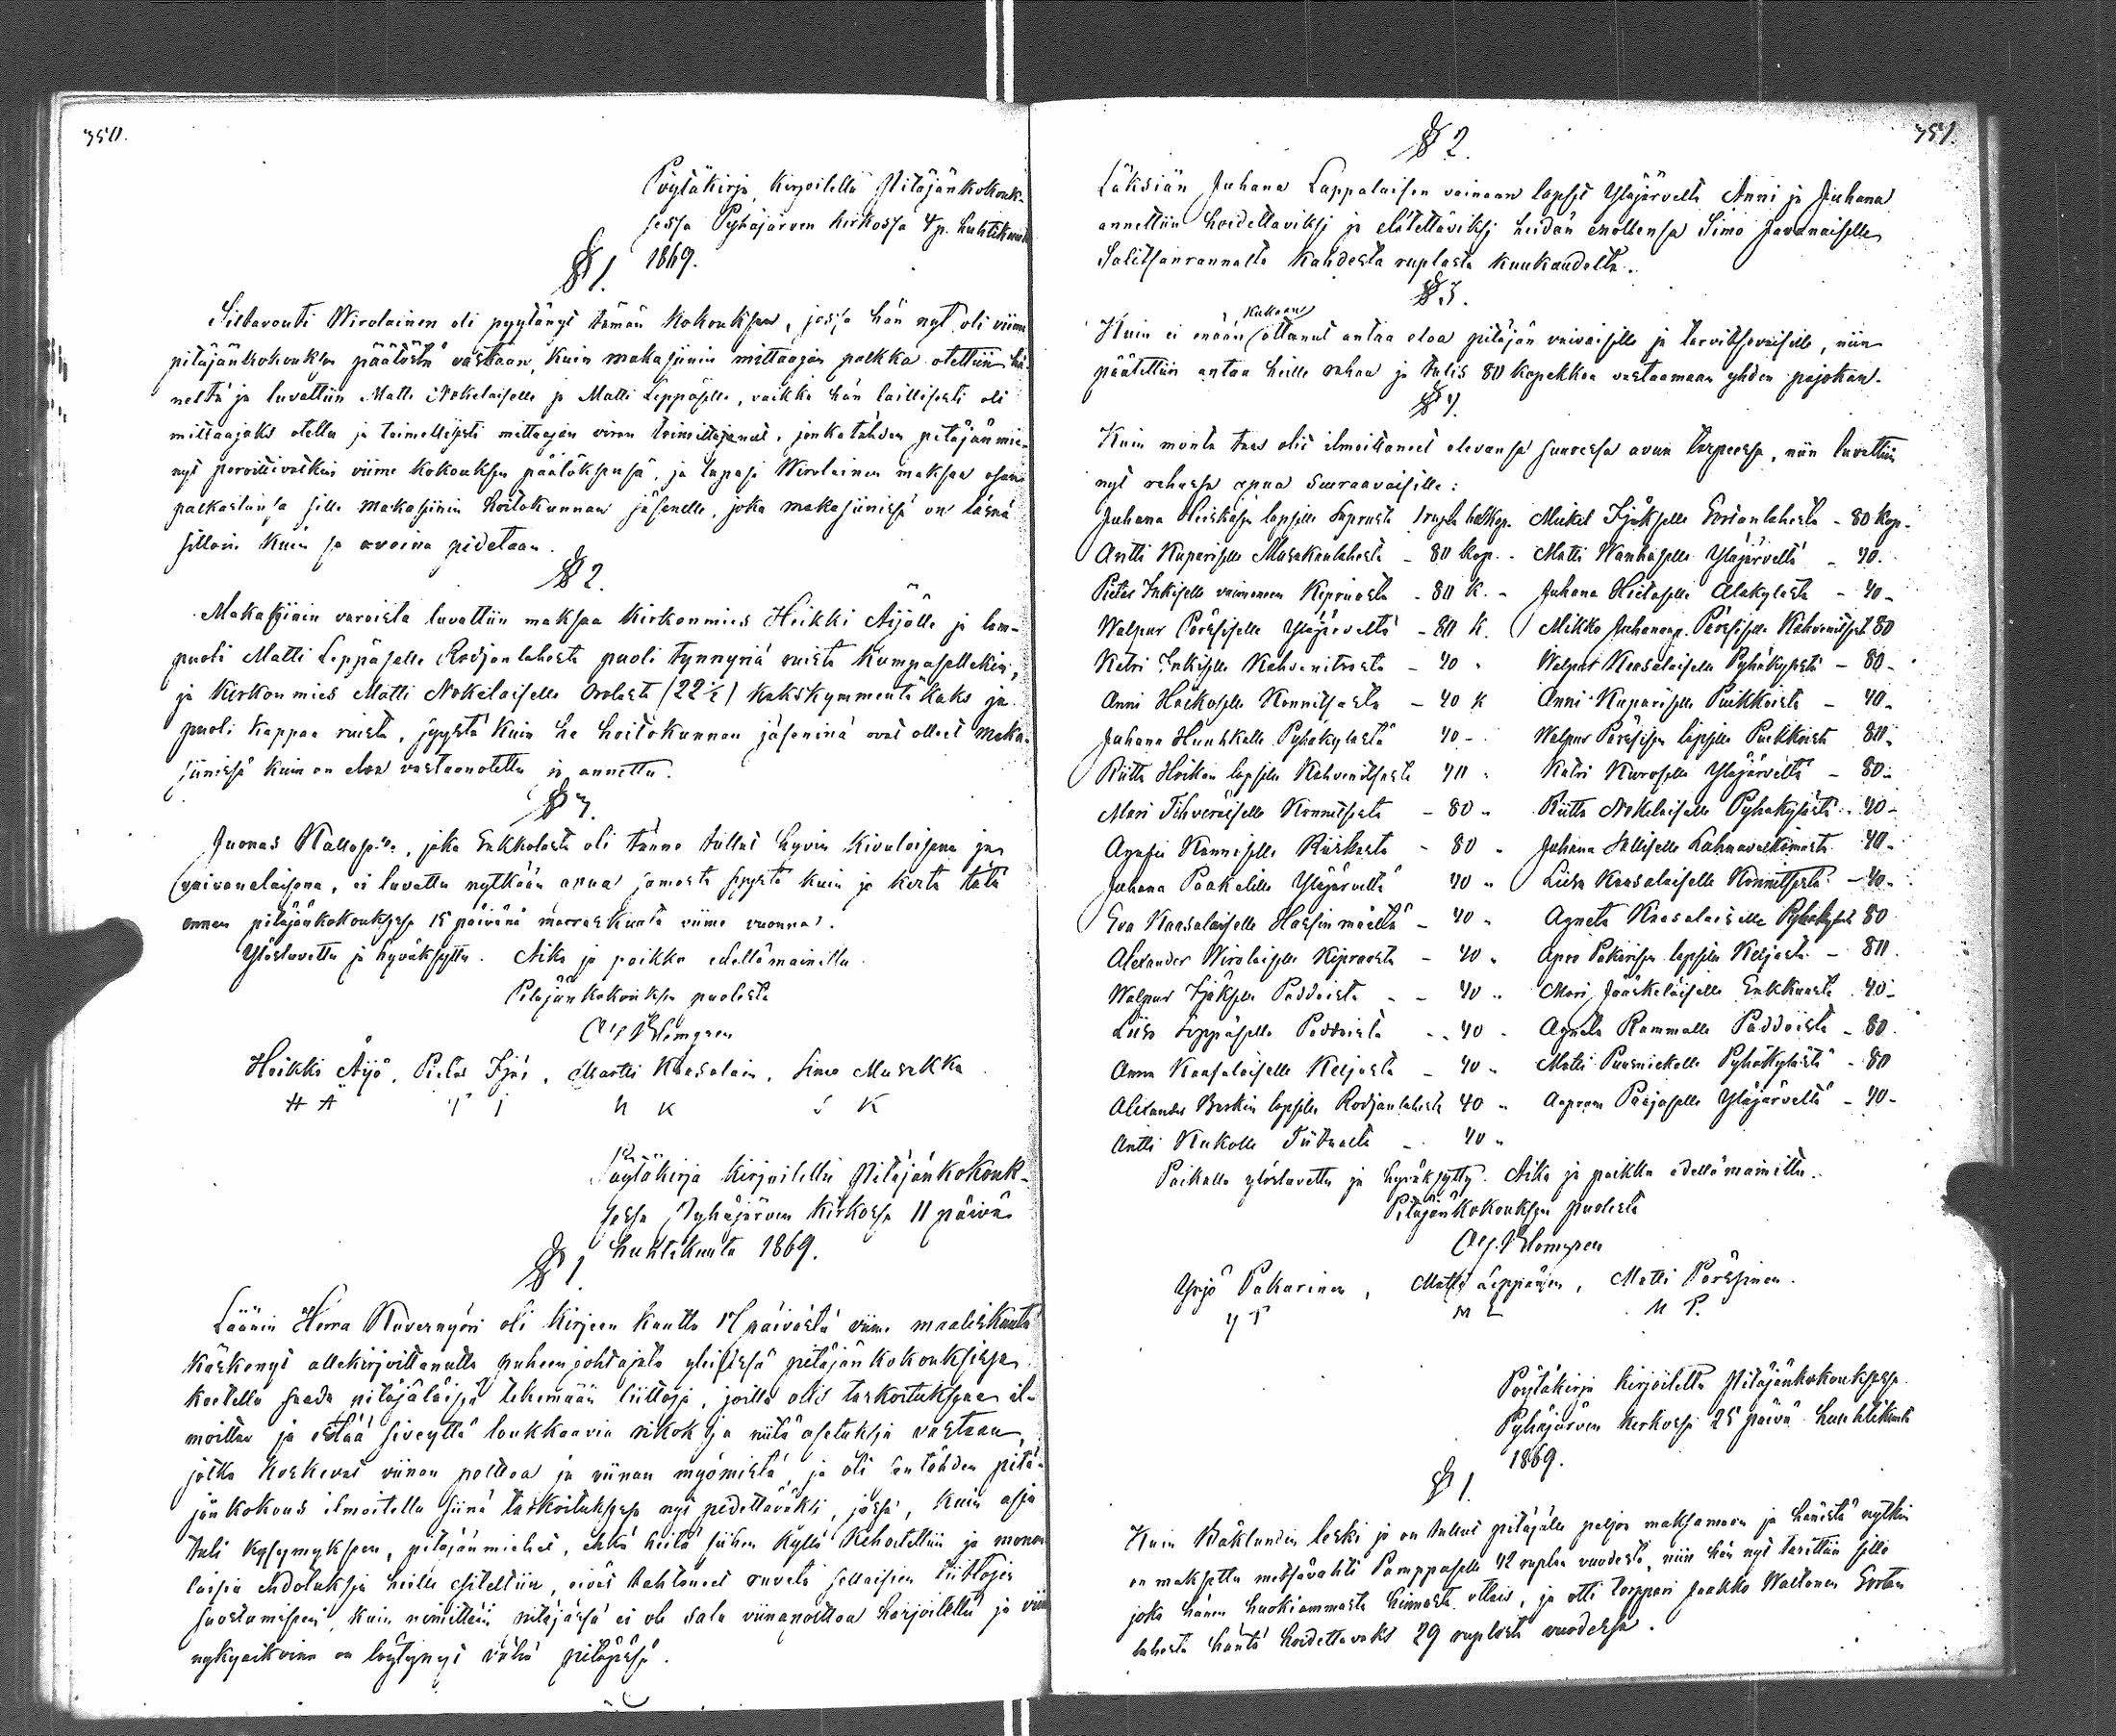 350.
Pöytäkirja, kirjoitettu Pitäjänkokouk-
sessa Pyhäjärven kirkossa 4 p. huhtikuuta
1869.
§ 1.
Siltavouti Wirolainen oli pyytänyt tämän kokouksen, jossa hän nyt oli viime
pitäjänkokouksen päätöstä vastaan, kuin makasiinin mittaajan palkka otettiin hä-
neltä ja luvattiin Matti Nokelaiselle ja Matti Leppäselle, vaikka hän laillisesti oli
mittaajaks otettu ja toimellisesti mittaajan viran toimittajanut, jonka tähden pitäjänmie-
nyt viime kokouksen päätöksensä, ja Wirolainen maksaa osan
palkastansa sille makasiinin hoitokunnan jäsenelle, joka makasiinissa on läsnä
silloin kuin se avoina pidetään.
§ 2.
Makasiinin varoista luvattiin maksaa kirkonmies Heikki Äijölle ja lam-
puoti Matti Leppäselle Rodjonlahosta puoli tynnyriä ruista kumpasellekin,
ja kirkonmies Matti Nokelaiselle (22 ½) kakskymmentä kaks ja
puoli kappaa ruista, syystä kuin he hoitokunnan jäseninä ovat olleet maka-
siinissa kuin on eloa vastaanotettu ja annettu.
§ 3.
Juonas joka Enkkolasta oli tänne tullut hyvin kivuloisena ja
vaivanalaisena, ei luvattu nytkään apua samasta syystä kuin jo kerta tätä
ennen pitäjänkokouksessa 15 päivänä marraskuuta viime vuonna.
Ylösluvettu ja hyväksytty. Aika ja paikka edellämainittu.
Pitäjänkokouksen puolesta
Heikki Äijö, Pietar Ijäs, Martti Kaasalain, Simo Musakka
H Ä P I M K S K
Pöytäkirja kirjoitettu Pitäjänkokouk-
sessa Pyhäjärven kirkossa 11 päivä
huhtikuuta 1869.
§ 1
Läänin Herra Kuvernyöri oli kirjeen kautta 17 päivästä viime maaliskuuta
käskenyt allekirjoittanutta puheenjohtajata yleisissä pitäjänkokouksissa
koetella saada pitäjäläisiä tekemään liittoja, joilla olis tarkoituksena il-
moittaa ja estää siveyttä loukkaavia rikoksia ja niitä asetuksia vastaan,
jotka koskevat viinan polttoa ja viinan myömistä, ja oli sentähden pitä-
jän kokous ilmoitettu siinä tarkoituksessa nyt pidettäväksi, jossa, kuin asia
tuli kysymykseen, pitäjänmiehet, ehkä heitä siihen kyllä kehoitettiin ja monen-
laisia ehdotuksia heille esiteltiin, eivät tahtoneet ruveta sellaisien liittojen
suostumiseen, kuin nimittäin pitäjässä ei ole sala viinanpolttoa harjoitettu ja viin
nykyaikoina on löytynyt vähä pitäjässä.
351.
§ 2.
Läksiän Juhana Lappalaisen vainaan lapset Yläjärveltä Anni ja Juhana
annettiin hoidettaviksi ja elätettäviksi heidän enollensa Simo Javanaiselle
Salitsanrannalta kahdesta ruplasta kuukaudelta.
§ 3.
Kukaan
Kuin ei enään ottanut antaa eloa pitäjän vaivaisille ja tarvitsevaisille, niin
päätettiin antaa heille rahaa ja tulis 80 kopekkaa vastaamaan yhden pajokan.
§ 4.
Kuin monta taas olit ilmoittaneet olevansa suuressa avun tarpeessa, niin luvattiin
nyt rahassa apua seuraavaisille:
Juhana Heiskasen lapsille 1 rupla Mickel Ijäkselle Sortanlahosta - 80 kop.
Antti Kupariselle Musakanlahosta - 80 kop. - Matti Wanhaselle Yläjärveltä - 40.
Pietar Inkiselle vaimoneen Kiprusta - 80 K. - Juhana Hietaselle Alakylästä - 40 -
Walpur Pärssiselle Yläjärveltä - 80 K. Mikko Juhananp. Pärssiselle Kahvenitsast 80
Katri Inkiselle Kahvenitsasta - 40 " Walpur Kaasalaiselle Pyhäkylästä - 80 -
Anni Hackoselle Konnitsasta - 40 K Anni Kupariselle Puikkoista - 40 -
Juhana Huuhkalle Pyhäkylästä 40 - Walpur Pärssisen lapsille Puikkoista 80 -
Riitta Hoikan lapsille Kahvenitsasta 40 " Katri Kurosella Yläjärveltä - 80 -
Mari Tihveräiselle Konnitsasta - 80 " Riitta Nokelaiselle Pyhäkylästä - 40 -
Agafia Kanniselle Riiskasta - 80 " Juhana Salliselle Lahnavalkamasta 40 -
Juhana Paakalille Yläjärveltä 40 " Liisa Kaasalaiselle Konnitsasta - 40 -
Eva Kaasalaiselle Hassinmäeltä - 40 " Agneta Kaasalaiselle Pyhäkylästä 80
Alexander Wirolaiselle Kiprusta - 40 " Apro Pakarisen lapsille Keljasta - 80.
Walpur Ijäkselle Paddoista - - 40 " Mari Jääskeläiselle Enkkuasta 40 -
Liisa Leppäselle Poddoista - - 40 - Agneta Rammalle Paddoista - 80.
Anna Kaasalaiselle Keljasta - 40 " Matti Puusniekalle Pyhäkylästä - 80
Alexander Baskin lapsille Rodjanlahosta 40 " Aapram Paajaselle Yläjärveltä - 40 -
Antti Kukolle Tiituasta - 40 "
Paikalla ylösluvettu ja hyväksytty. Aika ja paikka edellämainittu.
Pitäjänkokouksen puolesta
Yrjö Pakarinen, Matti Leppänen, Matti Pärssinen.
Y P M L M P.
Pöytäkirja kirjoitettu Pitäjänkokouksessa
Pyhäjärven kirkossa 25 päivä huhtikuuta
1869.
§ 1.
Kuin Bäklundin leski jo on tullut pitäjälle paljon maksamaan ja hänestä nytkin
on maksettu metsävahti Pamppuselle 42 ruplaa vuodesta, niin hän nyt tarittiin sille
joka hänen huokiammasta hinnasta ottais, ja otti torppari Jaakko Waltonen Sortan-
lahosta häntä hoidettavaks 29 ruplasta vuodessa.